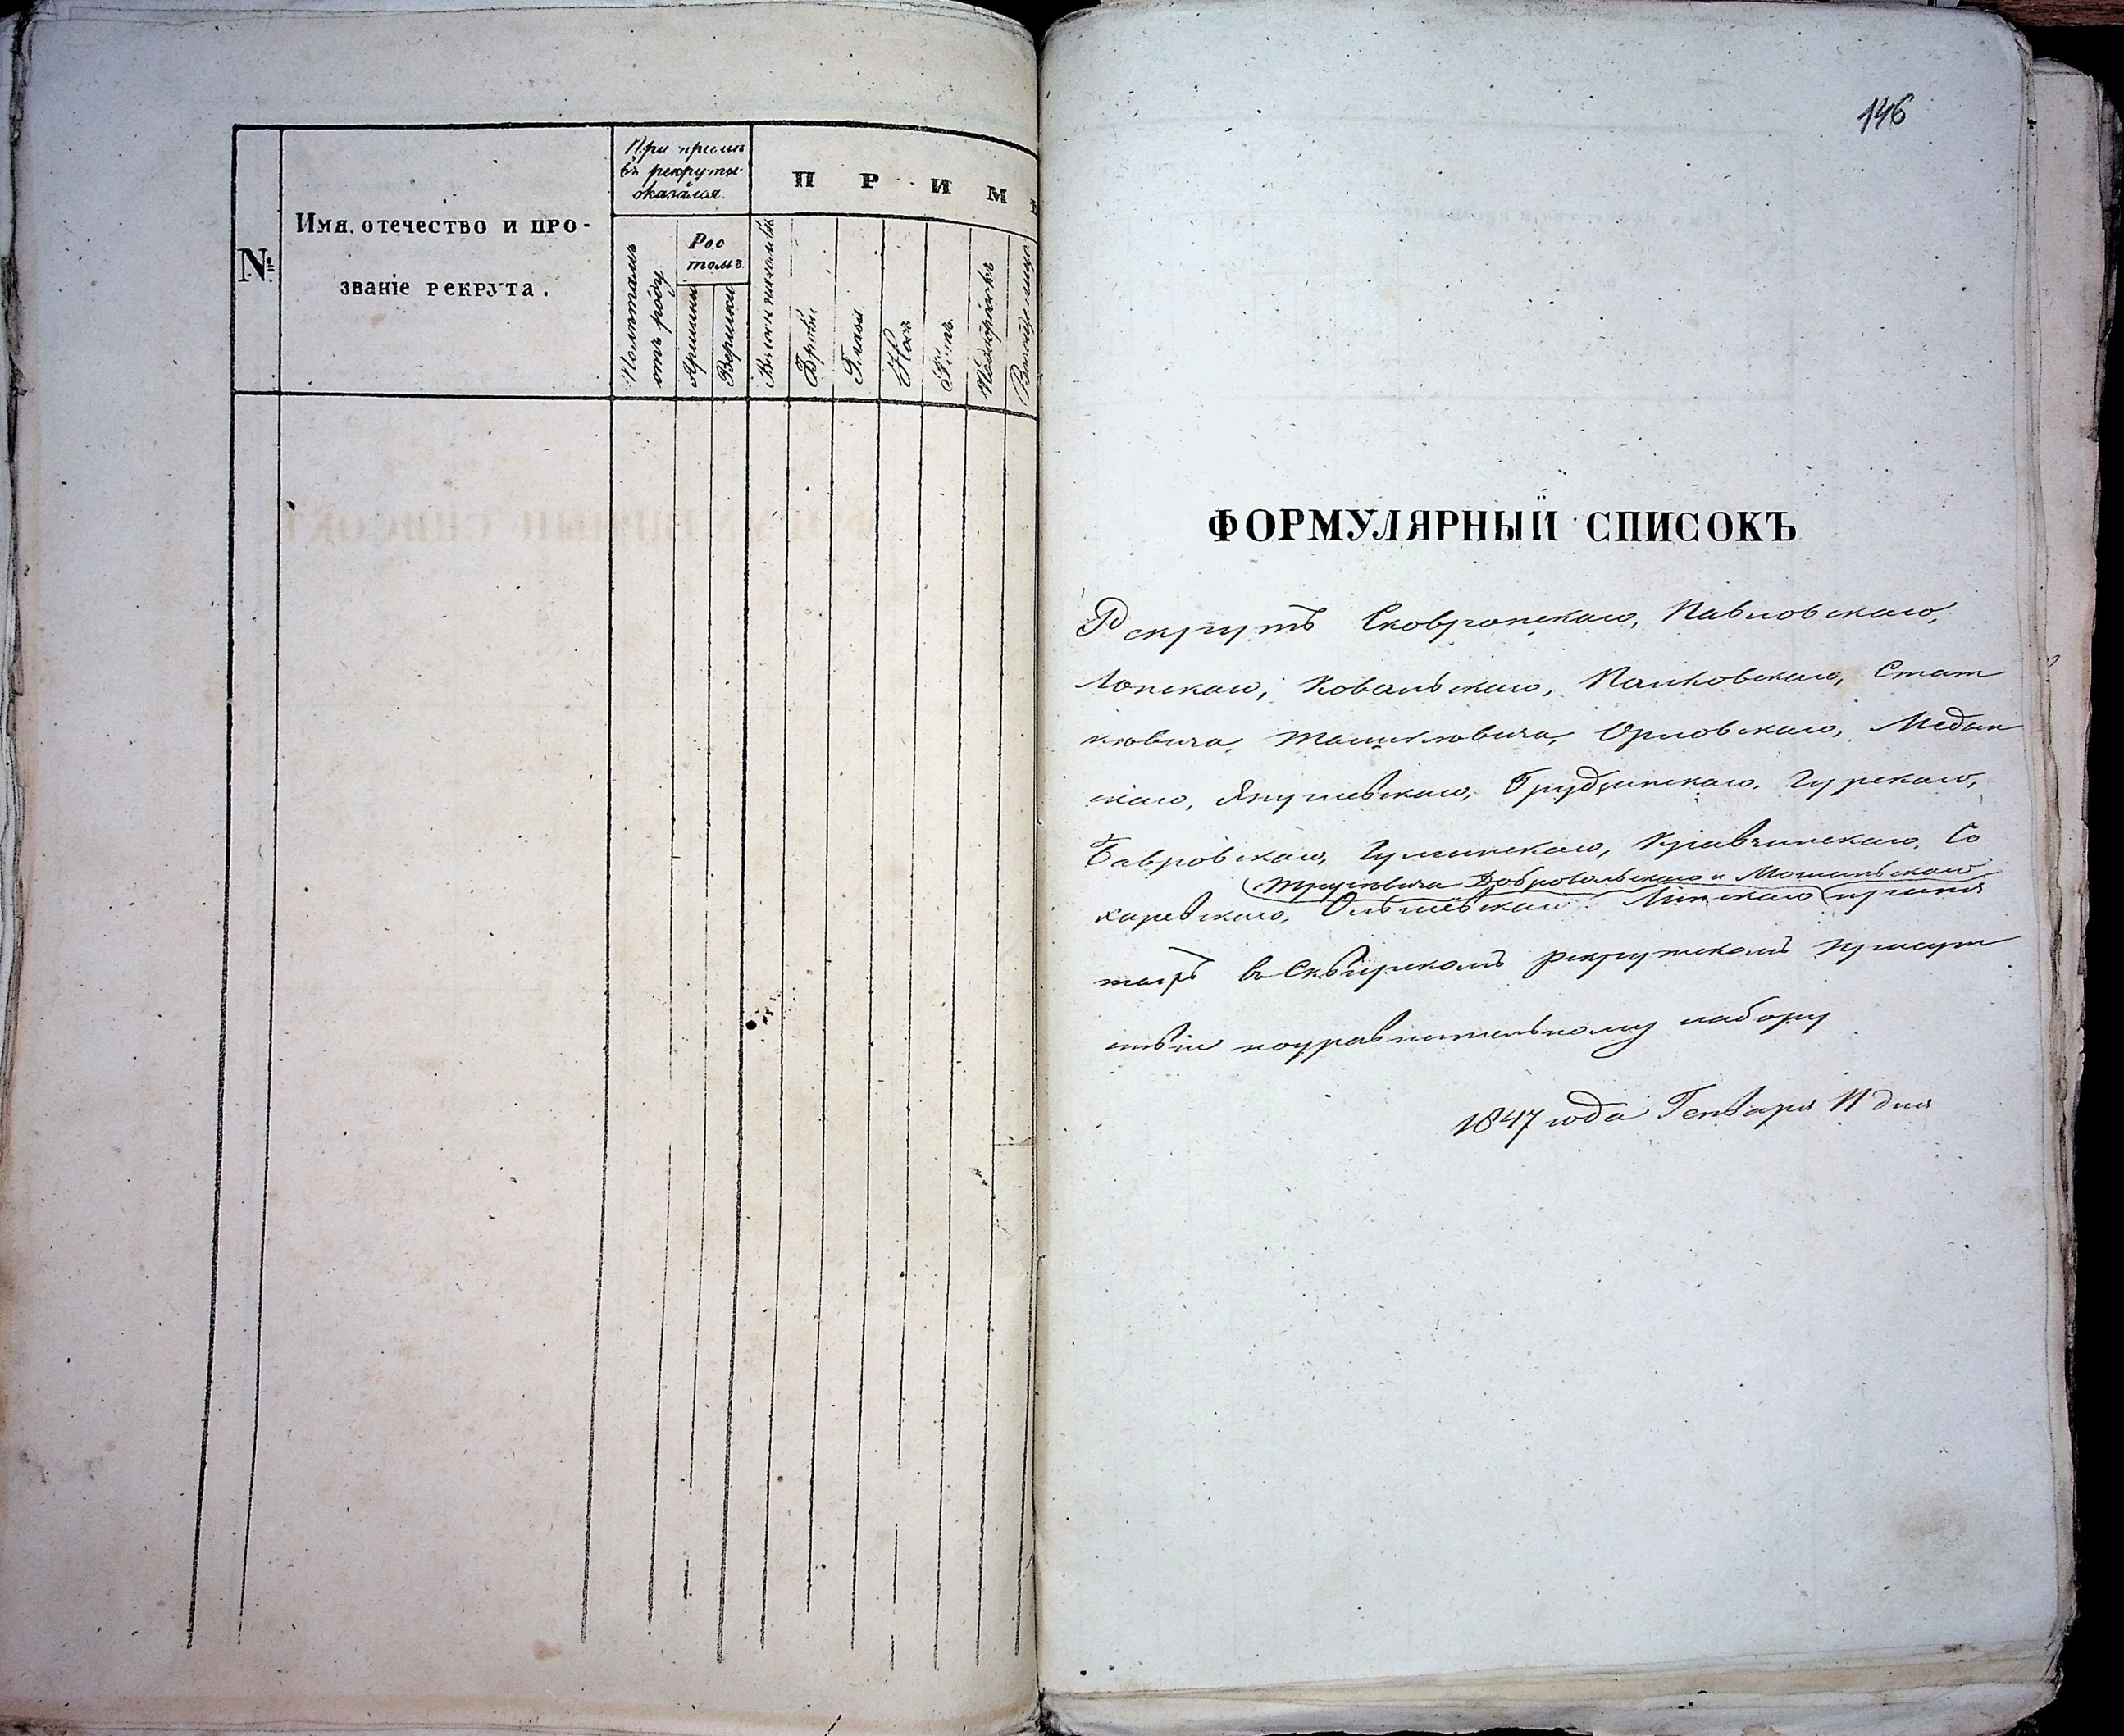 №
Имя, отечество и про-
званіе рекрута.
При пріемѣ
въ рекруты
оказался.
Сколько лѣтъ
отъ роду
Рос
томъ
Аршины
Вершки
П Р И М
Брови
Глаза
Носъ
Подбородокъ
146
ФОРМУЛЯРНЫЙ СПИСОКЪ
Рекрутъ Сковронскаго, Павловскаго,
Лонскаго, Ковальскаго, Палковскаго, Стат
кювича, Машкювича, Орловскаго, Медын
скаго, Янушевскаго, Грудзинскаго, Гурскаго,
Гавровскаго, Гульчинскаго, Кравчинскаго, Со
Добровольскаго и
харевскаго, Ольшевскаго Липскаго приня
въ Сквирскомъ рекрутскомъ присут
ствіи по уравнительному набору
1847 года Генваря 11 дня